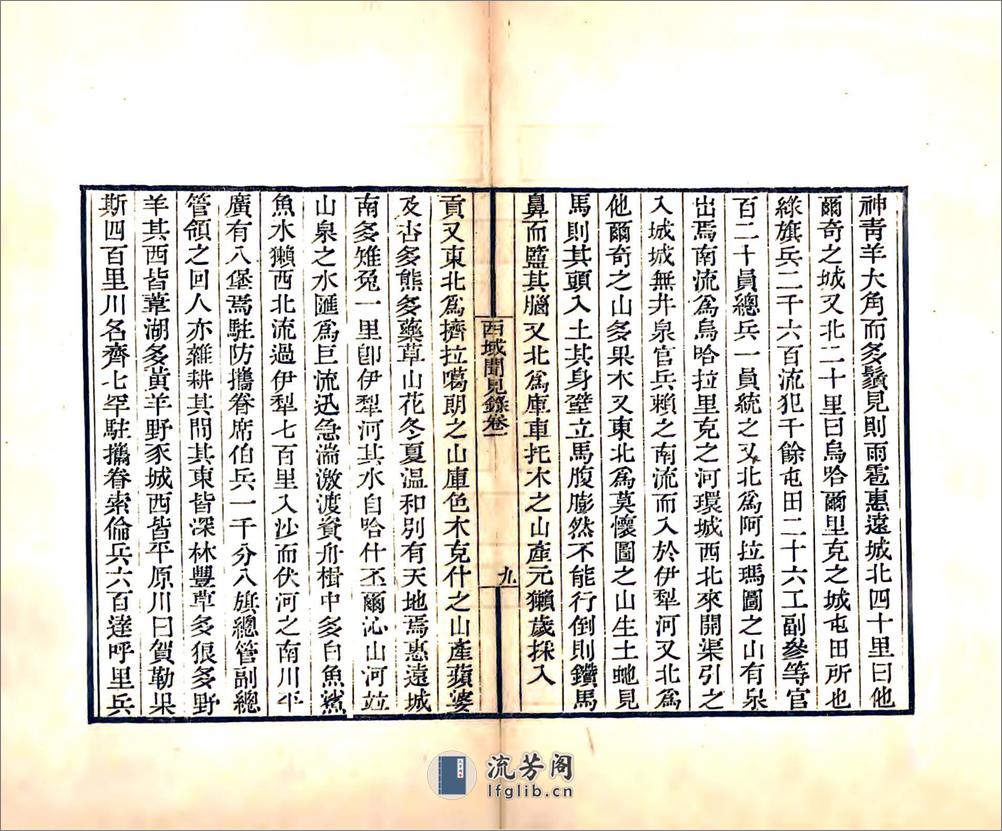 神青羊大角而多鬚見則雨雹惠遠城北四十里曰他
爾奇之城又北二十里曰烏哈爾里克之城屯田所也
綠旗兵二千六百流犯千餘屯田二十六工副參等官
百二十員總兵一員統之又北為阿拉瑪圖之山有泉
出焉南流為烏哈拉里克之河環城西北來開渠引之
入城城無井泉官兵賴之南流而入於伊犁河又北為
他爾奇之山多果木又東北為莫懷圖之山生土虵見
馬則其頭入土其身壁立馬腹膨然不能行倒則鑽馬
鼻而盬其腦又北為庫車托木之山產元獺歲採入
西域聞見錄卷一
九
貢又東北為擠拉噶朗之山庫色木克什之山產蘋婆
及杏多熊多藥草山花冬夏溫和別有天地焉惠遠城
南多雉兔一里卽伊犁河其水自哈什丕爾沁山河並
山泉之水匯為巨流迅急湍激渡資舟楫中多白魚鯊
魚水獺西北流過伊犁七百里入沙而伏河之南川平
廣有八堡焉駐防攜眷席伯兵一千分八旗總管副總
管領之回人亦雜耕其間其東皆深林豐草多狼多野
羊其西皆葦湖多黃羊野豕城西皆平原川曰賀勒杲
斯四百里川名齊七罕駐攜眷索倫兵六百達呼里兵
流芳阁
lfglib.cn